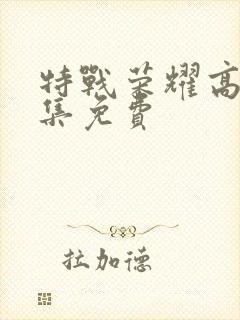 特戰榮耀高
集免費
拉加德